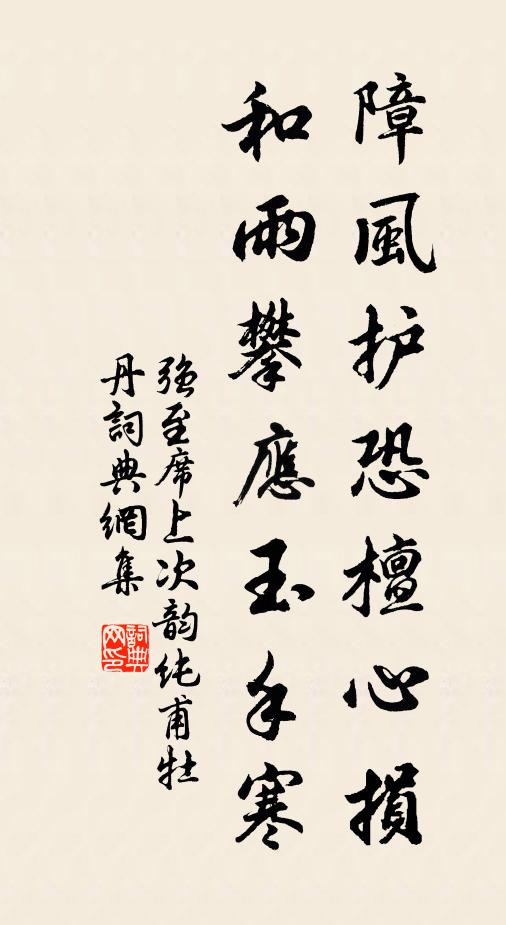 障風护恐檀心損
和雨攀應玉手寒
强至席上次韵纯甫牡
丹詞典網集
詞典
网印